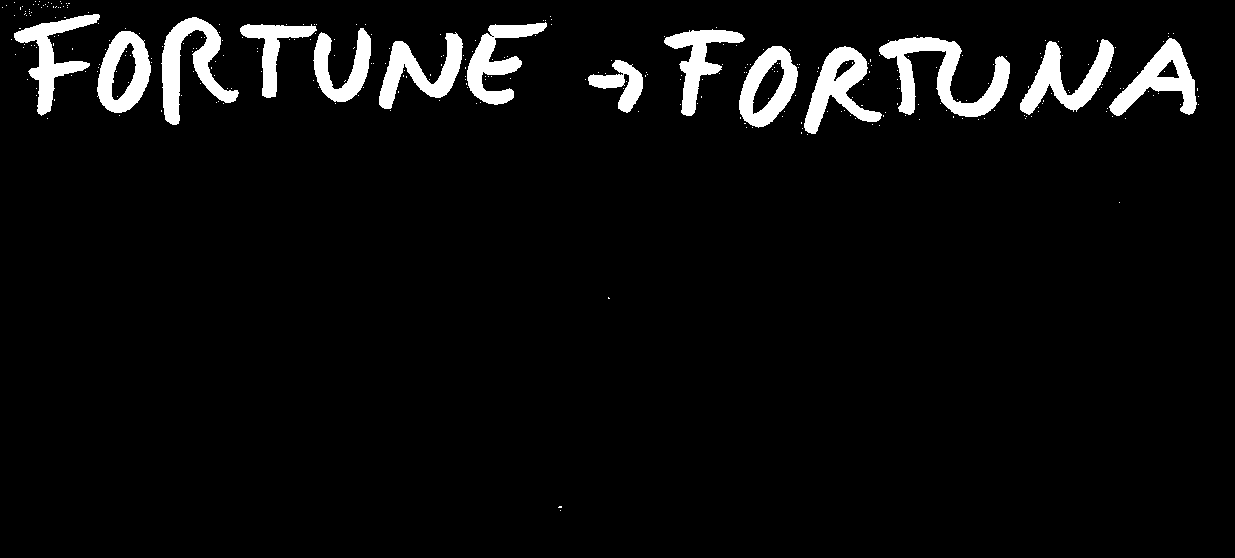 FORTUNE → FORTUNA